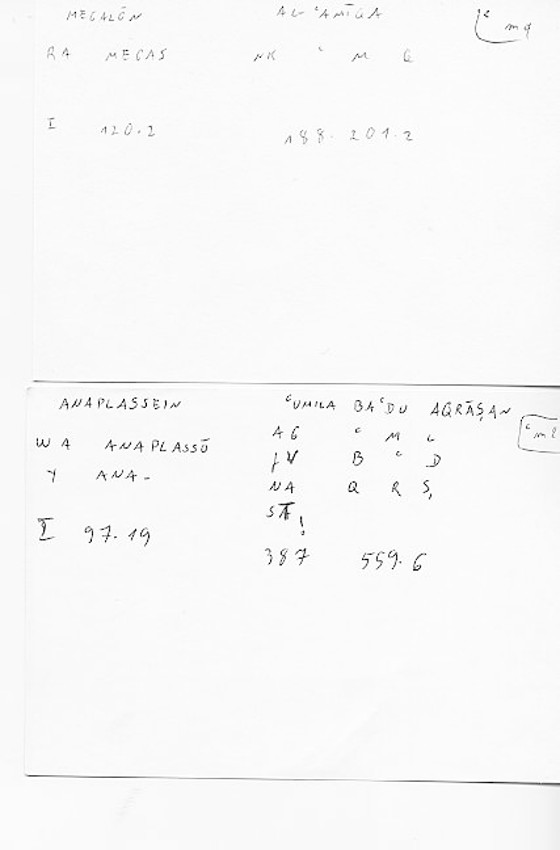 MEGALŌN AL-ʿAMĪGA ʿmq
RA MEGAS NK ʿ M G
I 120.2 188. 201.2
ANAPLASSEIN ʿUMILA BAʿDU AQRĀṢAN
W A ANAPLASSŌ AG ʿ M L
Y ANA- B ʿ D
NA Q R Ṣ
I 97.19
387 559.6